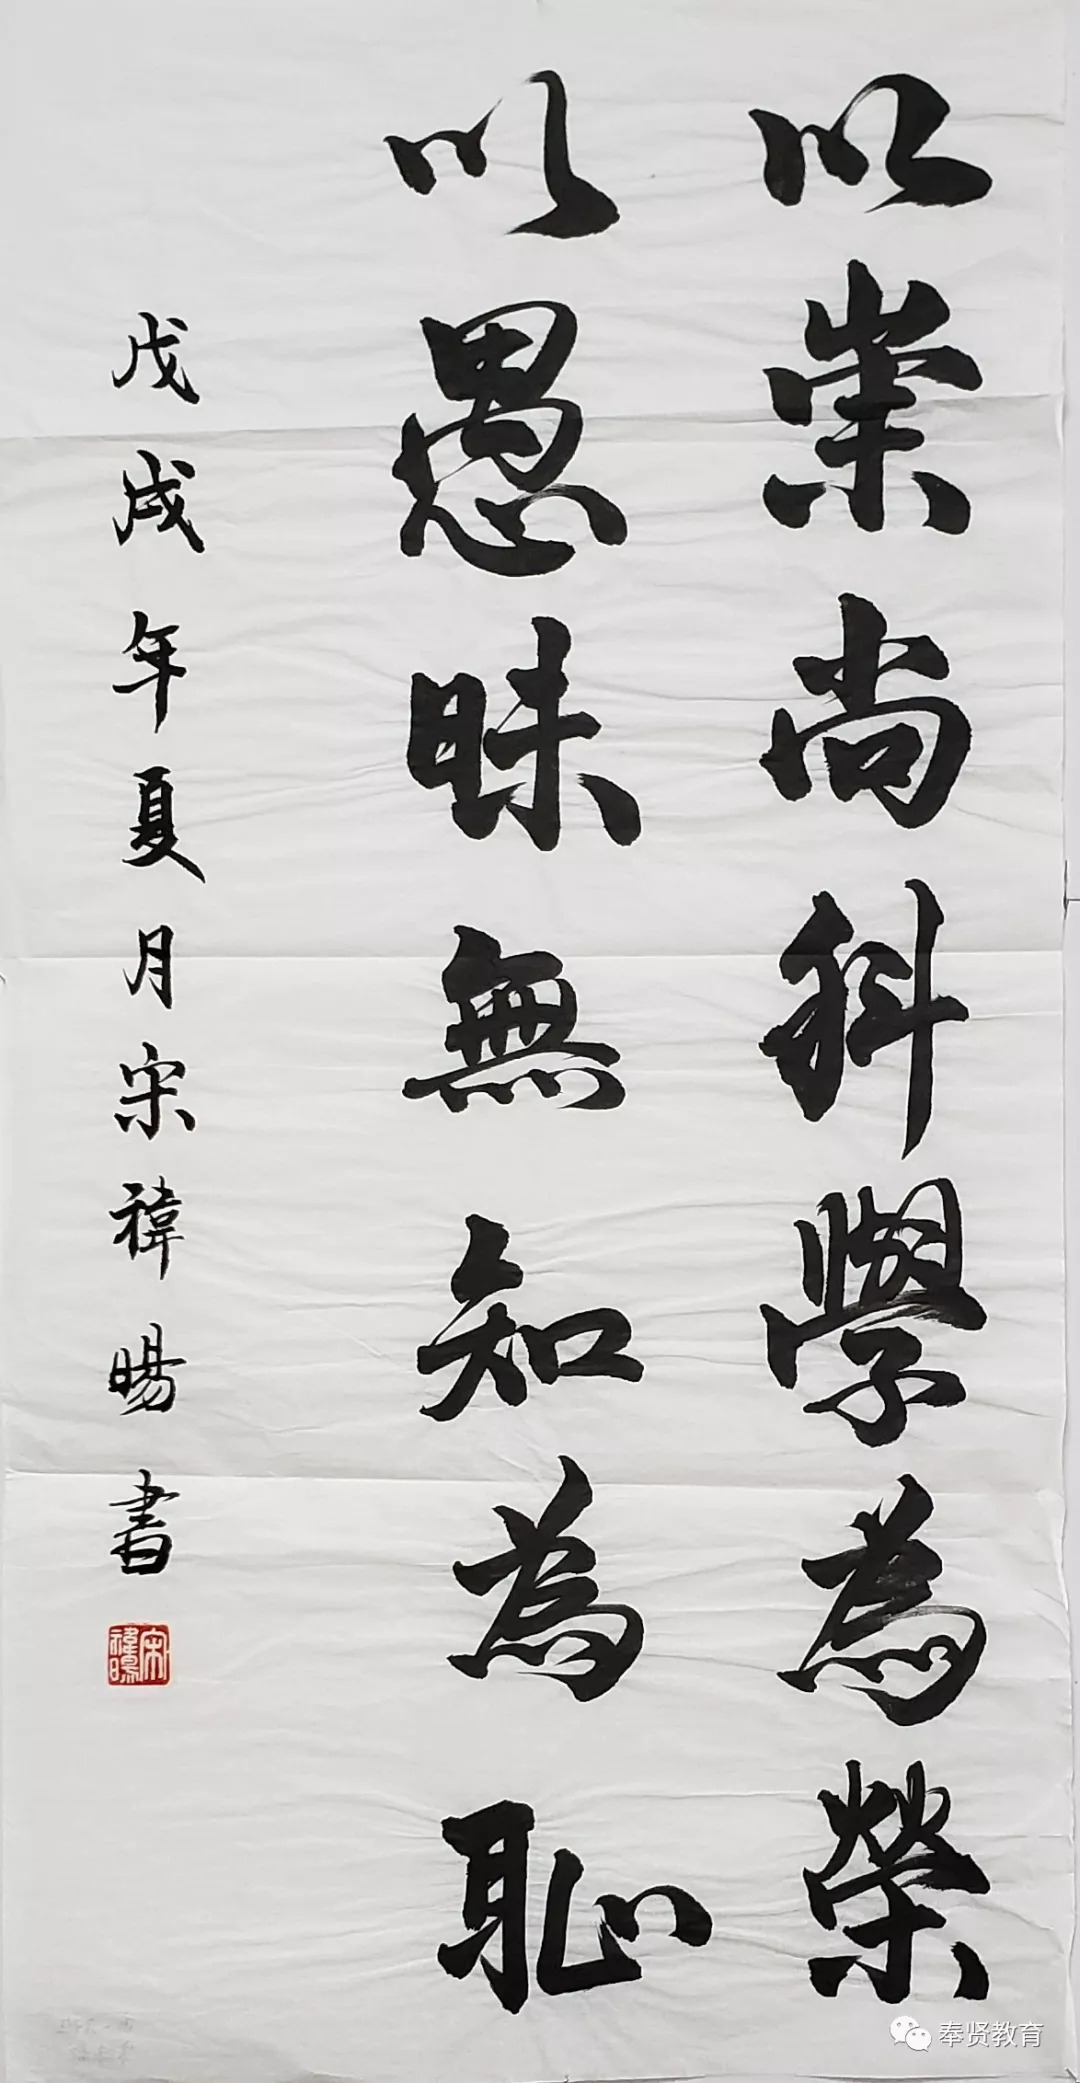 以崇尚科學為榮
以愚昧無知為恥
戊戌年夏月宋禕暘書
宋禕暘
奉贤教育